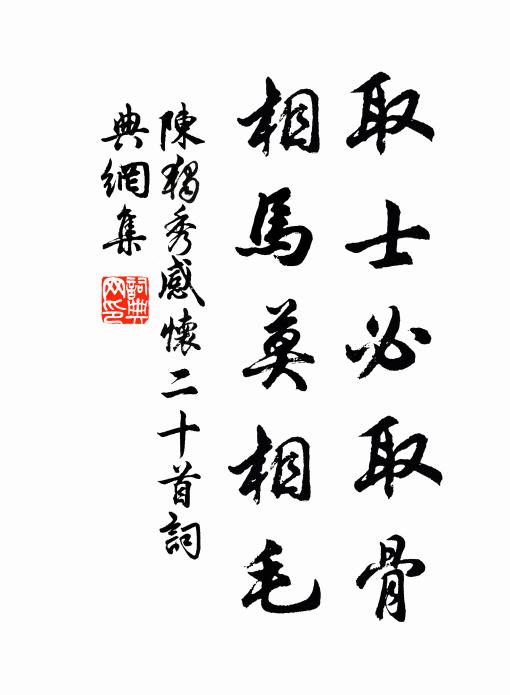 取士必取骨
相馬莫相毛
陳独秀感懷二十首詞
典網集
詞典
网印